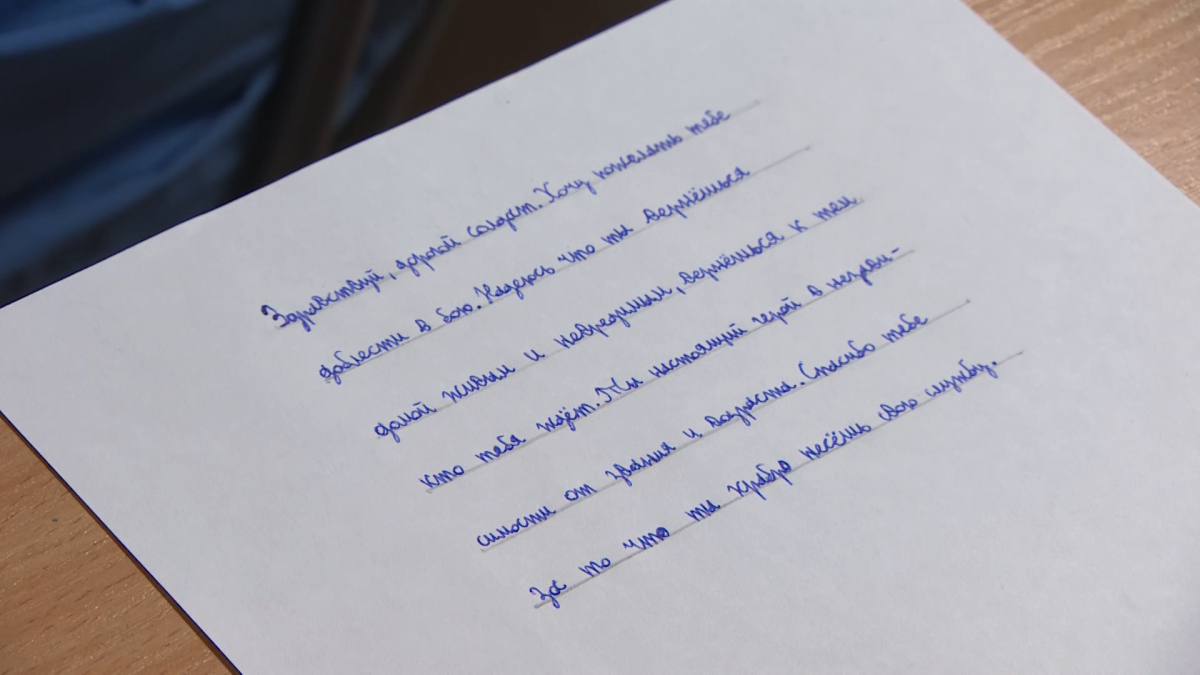 Здравствуй, дорогой солдат. Хочу пожелать тебе
доблести в бою. Надеюсь что ты вернёшься
домой живым и невредимым, вернёшься к тем
кто тебя ждёт. Ты настоящий герой в незрави-
симости от звания и возраста. Спасибо тебе
За то что ты храбро несёшь свою службу.